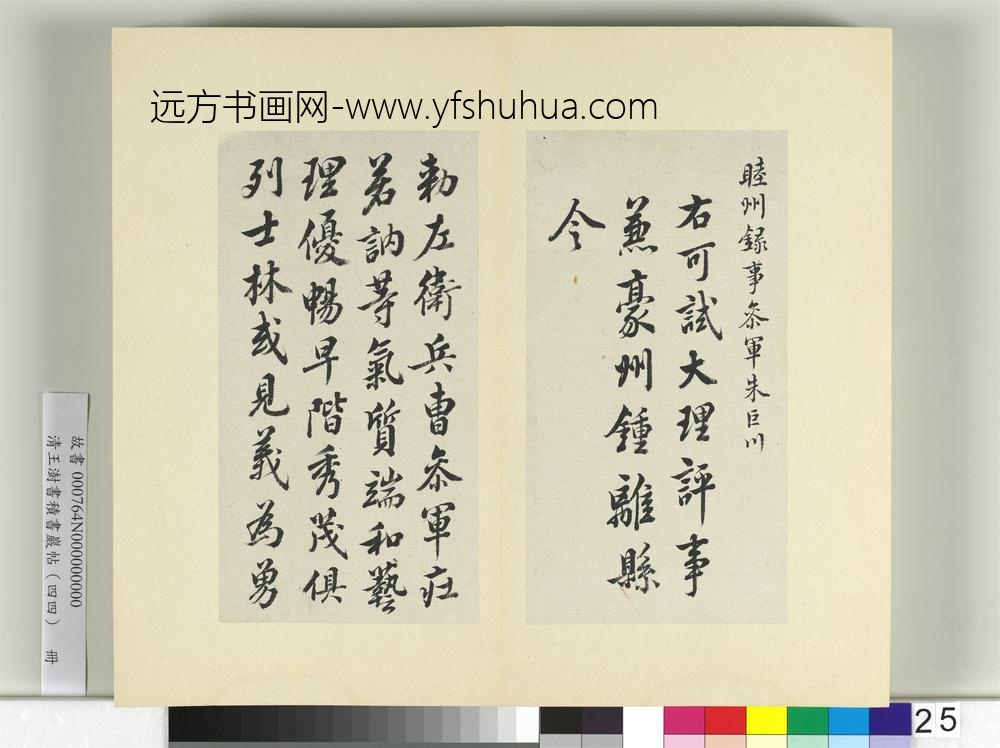 远方书画网-www.yfshuhua.com
睦州録事叅軍朱巨川
右可試大理評事
兼豪州鍾離縣
令
勅左衛兵曹叅軍莊
若訥等氣質端和藝
理優暢早階秀茂俱
列士林或見義為勇
故書 000764N000000000
清王澍書積書巖帖(四四) 冊
25